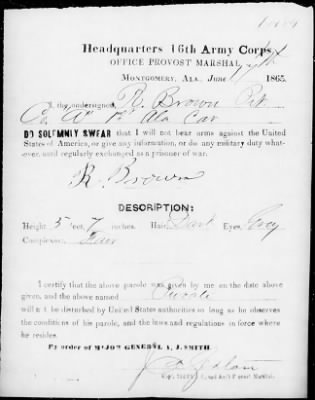 Headquarters 16th Army Corps,
OFFICE PROVOST MARSHAL,
MONTGOMERY, ALA. June 1865.
I, the undersigned, R. Brown Pvt
Co. "A" Ala Cav
DO SOLEMNLY SWEAR that I will not bear arms against the United
States of America, or give any information, or do any military duty what-
ever, until regularly exchanged as a prisoner of war.
R. Brown
DESCRIPTION:
Height 5 feet, 7 inches. Hair, Dark Eyes, Grey
Complexion, Fair
I certify that the above parole was given by me on the date above
given, and the above named Private
will not be disturbed by United States authorities so long as he observes
the conditions of his parole, and the laws and regulations in force where
he resides.
By order of MAJOR GENERAL A. J. SMITH.